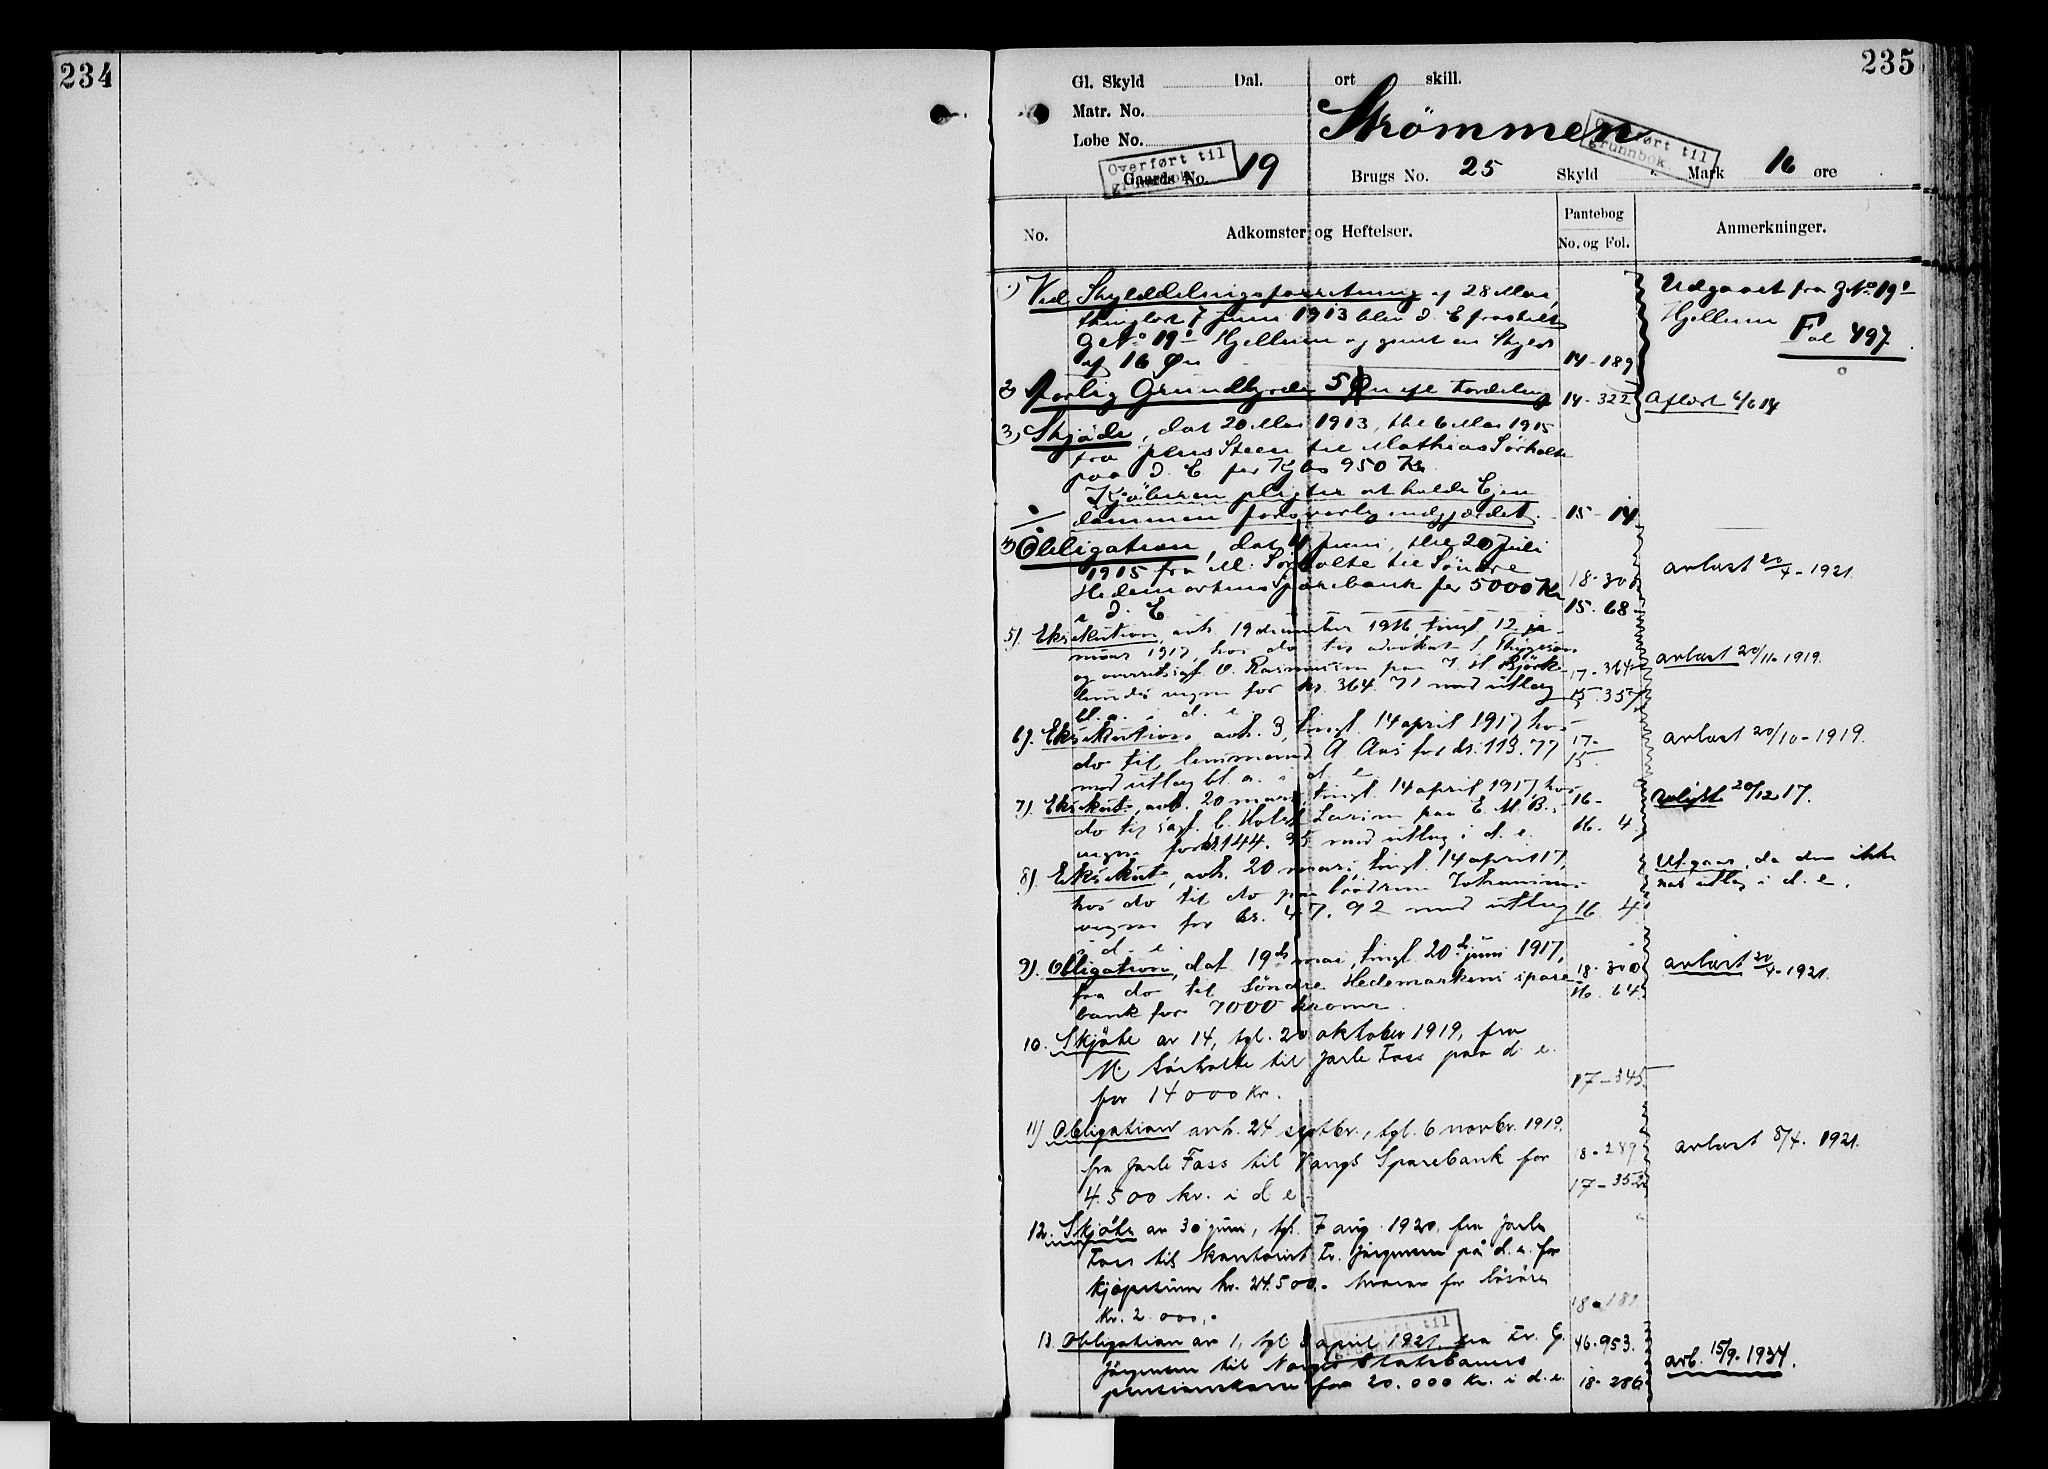 234
235
Gl. Skyld Dal. ort skill.
Matr. No.
Løbe No.
Strömmen
Overført til grunnbok
Overført til grunnbok
Gaards No. 19 Brugs No. 25 Skyld Mark 16 øre
No. Adkomster og Heftelser. Pantebog No. og Fol. Anmerkninger.
1) Ved Skylddelingsforretning af 28 Mai,
thinglæst 7 Juni 1913 blev d. E fraskilt
GNo 19/1 Hjellum og givet en Skyld
af 16 Øre 14-189
Udgaaet fra GNo 19/1
Hjellum Fol 497.
2) Aarlig Grundbyrde 5 Øre efter Fordeling 14-322 Aflæst
3) Skjöde, dat 20 Mai 1913, thl 6 Mai 1915
fra Jens Steen til Mathias Sørholte
paa d. E for Kjbs 950 Kr.
Kjøberen pligter at holde Eien
dommen forsvarlig indgjærdet. 15-14
4) Obligation, dat 4 Juni, thl 20 Juli
1915 fra M. Sørholte til Søndre
Hedemarkens Sparebank for 5000 Kr 18-300
i d. E 15-68
avlæst 20/4-1921.
5). Eksekution, avh. 19 december 1916, tingl. 12 ja-
nuar 1917, hos do til advokat S. Thygeson
og overretssaf. O. Rasmussen paa J. H. Björk- 17-364
lunds vegne for kr. 364.71 med utlæg 15.357
bl. a. i d. e.
avlæst 20/11-1919.
6). Eksekution avh. 3, tingl. 14 april 1917 hos 17-
do til lensmand A. Aas for kr. 113.77 15.
med utlæg bl. a. i d. e.
avlæst 20/10-1919.
7). Eksekut. avh. 20 mars, tingl. 14 april 1917, hos 16-
do til sagf. C. Holst Larsen paa E. M. B.s 16. 4.
vegne for kr. 144.35 med utlæg i d. e.
avlyst 20/12 17.
8). Eksekut., avh. 20 mars, tingl. 14 april 17,
hos do til do paa brødrene Johannessens
vegne for kr. 47.92 med utlæg 16. 4.
i d. e.
Utgaar, da den ikke
har utlæg i d. e.
9). Obligation, dat 19de mai, tingl. 20de juni 1917,
fra do til Søndre Hedemarkens spare- 18-300
bank for 7000 kroner. 16. 64.
avlæst 20/4-1921.
10. Skjøte av 14, tgl. 20 oktober 1919, fra
M. Sørholte til Jarle Foss paa d. e.
for 14000 Kr. 17-345
11) Obligation avh. 24 septbr., tgl. 6 novbr. 1919.
fra Jarle Foss til Vangs Sparebank for 8-289
4.500 kr. i d e. 17-352
avlæst 8/4. 1921.
12. Skjøte av 30 juni, tgl. 7 aug. 1920, fra Jarle
Foss til kontorist Fr. Jörgensen på d. e. for
kjøpesum kr. 24.500.- hvorav for løsøre
kr. 2.000,- 18-181.
13 Obligation av 1, tgl 8 april 1921, fra Fr. G. 46.953.
Jörgensen til Norges Statsbaners
pensionskasse for 20.000 Kr. i d. e. 18-286.
avl. 15/9. 1934.